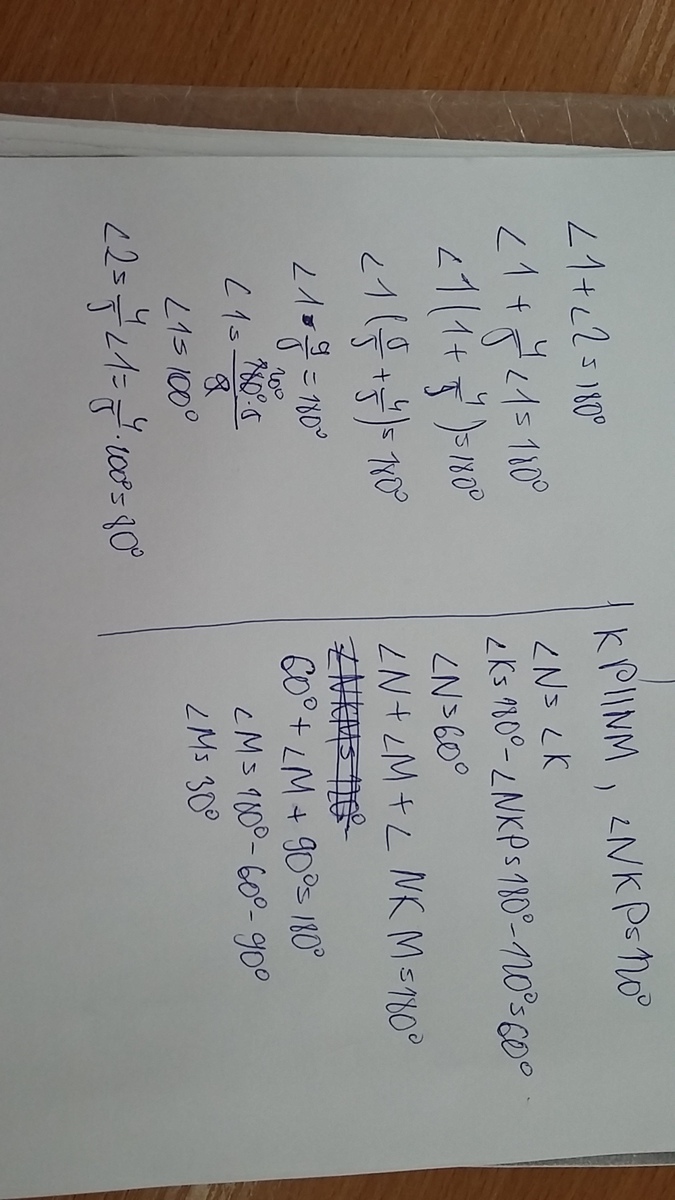 ∠1 + ∠2 = 180°
∠1 + 4/5 ∠1 = 180°
∠1 (1 + 4/5) = 180°
∠1 (5/5 + 4/5) = 180°
∠1 · 9/5 = 180°
∠1 = 180° · 5 / 9
20°
∠1 = 100°
∠2 = 4/5 ∠1 = 4/5 · 100° = 80°
KP || NM, ∠NKP = 120°
∠N = ∠K
∠K = 180° - ∠NKP = 180° - 120° = 60°
∠N = 60°
∠N + ∠M + ∠NKM = 180°
∠NKM = 120°
60° + ∠M + 90° = 180°
∠M = 180° - 60° - 90°
∠M = 30°